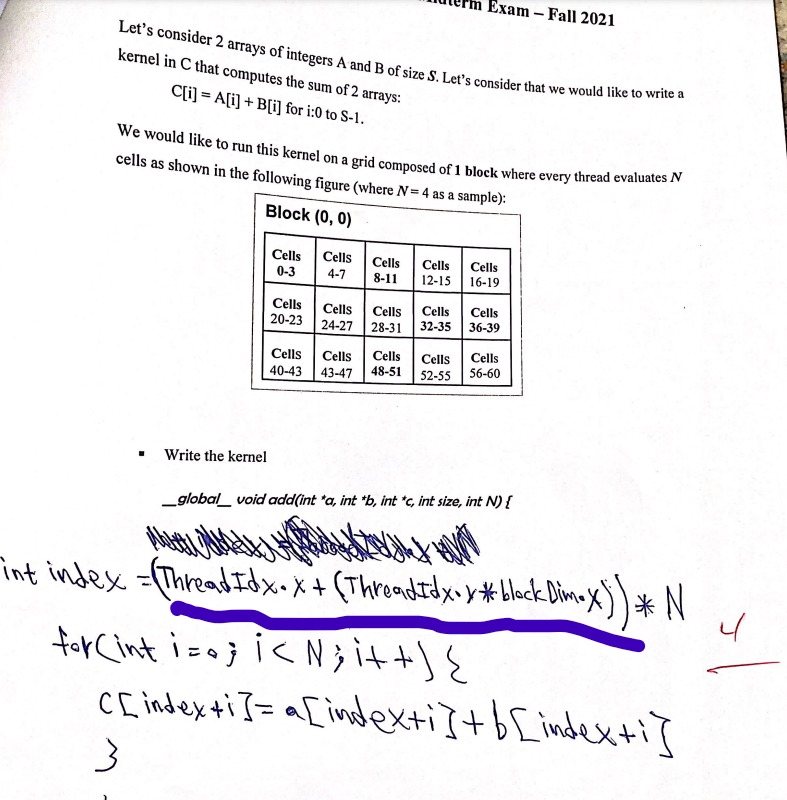 Exam – Fall 2021
Let's consider 2 arrays of integers A and B of size S. Let's consider that we would like to write a
kernel in C that computes the sum of 2 arrays:
C[i] = A[i] + B[i] for i:0 to S-1.
We would like to run this kernel on a grid composed of 1 block where every thread evaluates N
cells as shown in the following figure (where N= 4 as a sample):
Block (0, 0)
Cells Cells Cells Cells Cells
0-3 4-7 8-11 12-15 16-19
Cells Cells Cells Cells Cells
20-23 24-27 28-31 32-35 36-39
Cells Cells Cells Cells Cells
40-43 43-47 48-51 52-55 56-60
▪ Write the kernel
__global__ void add(int *a, int *b, int *c, int size, int N) {
int index =(ThreadIdx.x + (ThreadIdx.y * blockDim.x)) * N
4
for(int i=0; i< N; i++) {
C[index+i]= a[index+i]+b[index+i]
}